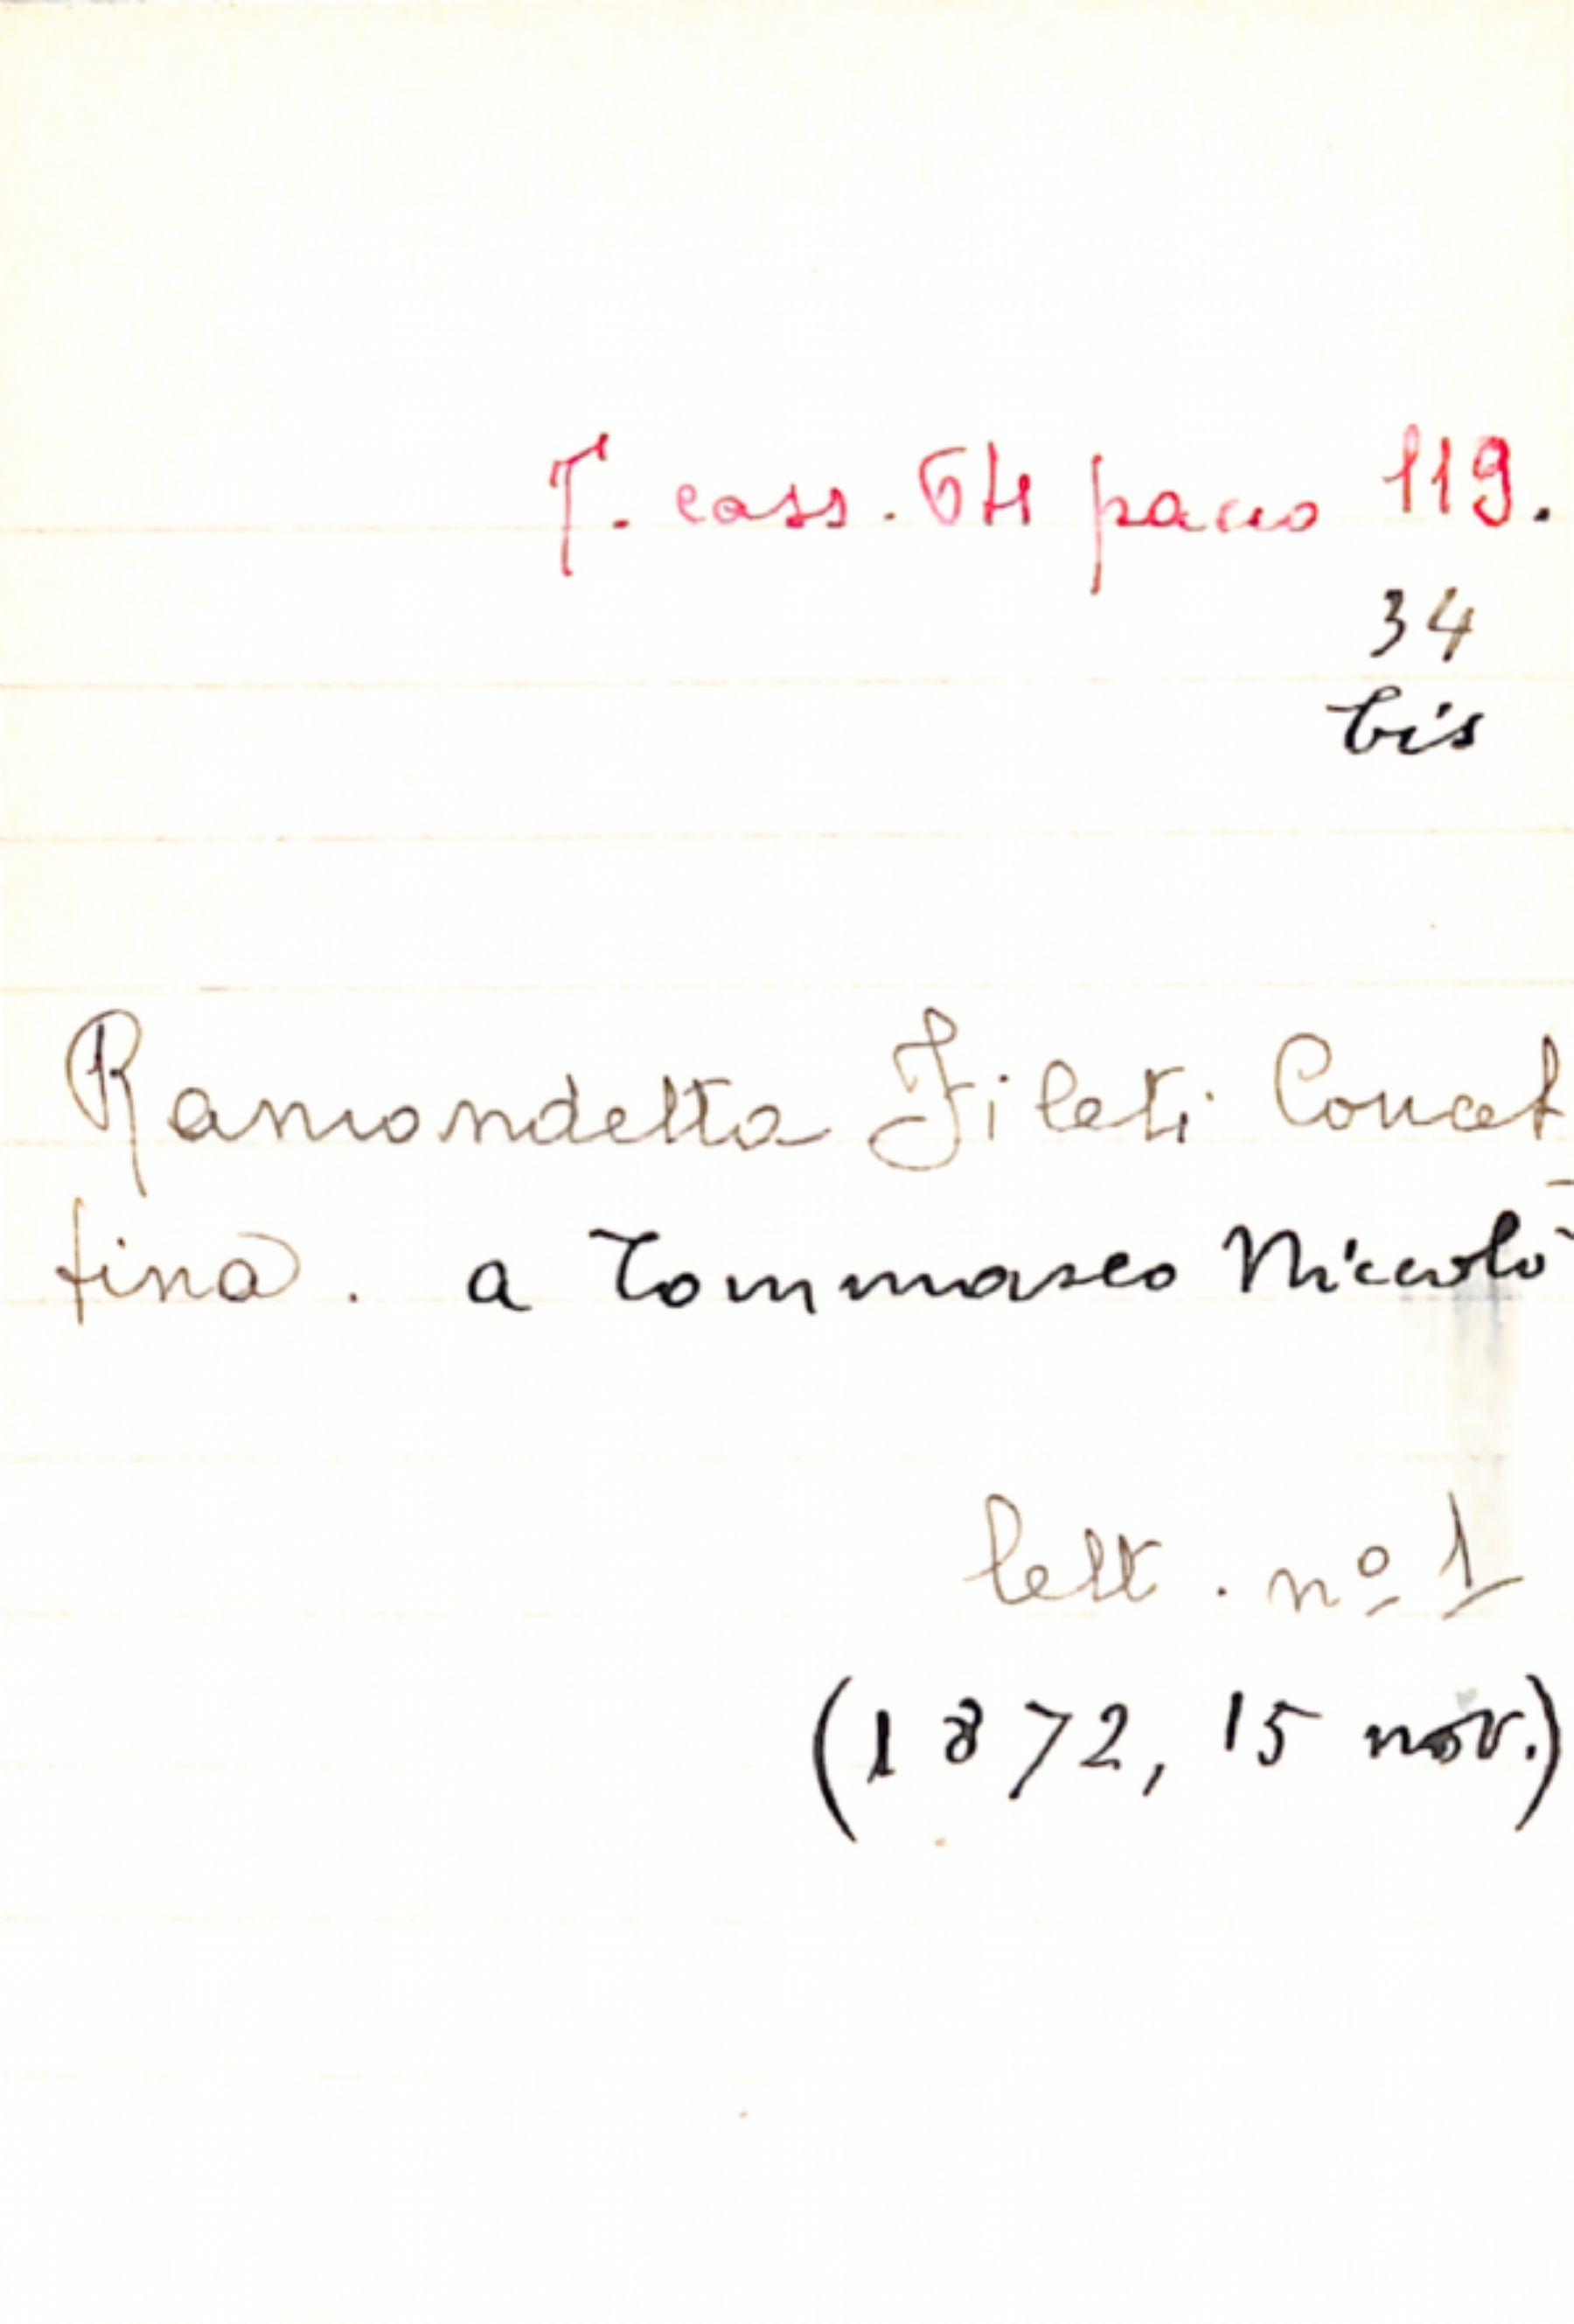 T. cass. 64 pacco 119.
34
bis
Ramondetta Fileti Concet
tina. a Tommaseo Niccolò
lett. nº 1
(1872, 15 nov.)